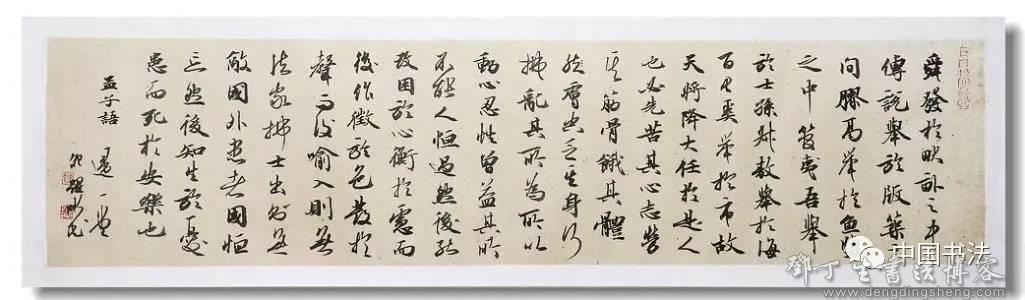 舜發於畎畝之中
傅說舉於版築
間膠鬲舉於魚
之中管夷吾舉
於士孫叔敖舉於海
百里奚舉於市故
天將降大任於是人
也必先苦其心志勞
其筋骨餓其體
膚空乏其身行
拂亂其所為所以
動心忍性曾益其所
不能人恒過然後能
改困於心衡於慮而
後作徵於色發於
聲而後喻入則無
法家拂士出則無
敵國外患者國恒
亡然後知生於憂
患而死於安樂也
孟子語
中国书法
鄧丁生書法博客
www.dengdingsheng.com